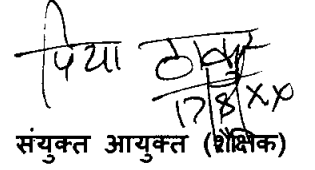 पिया ठाकुर
17/8/XX
संयुक्त आयुक्त (शैक्षिक)